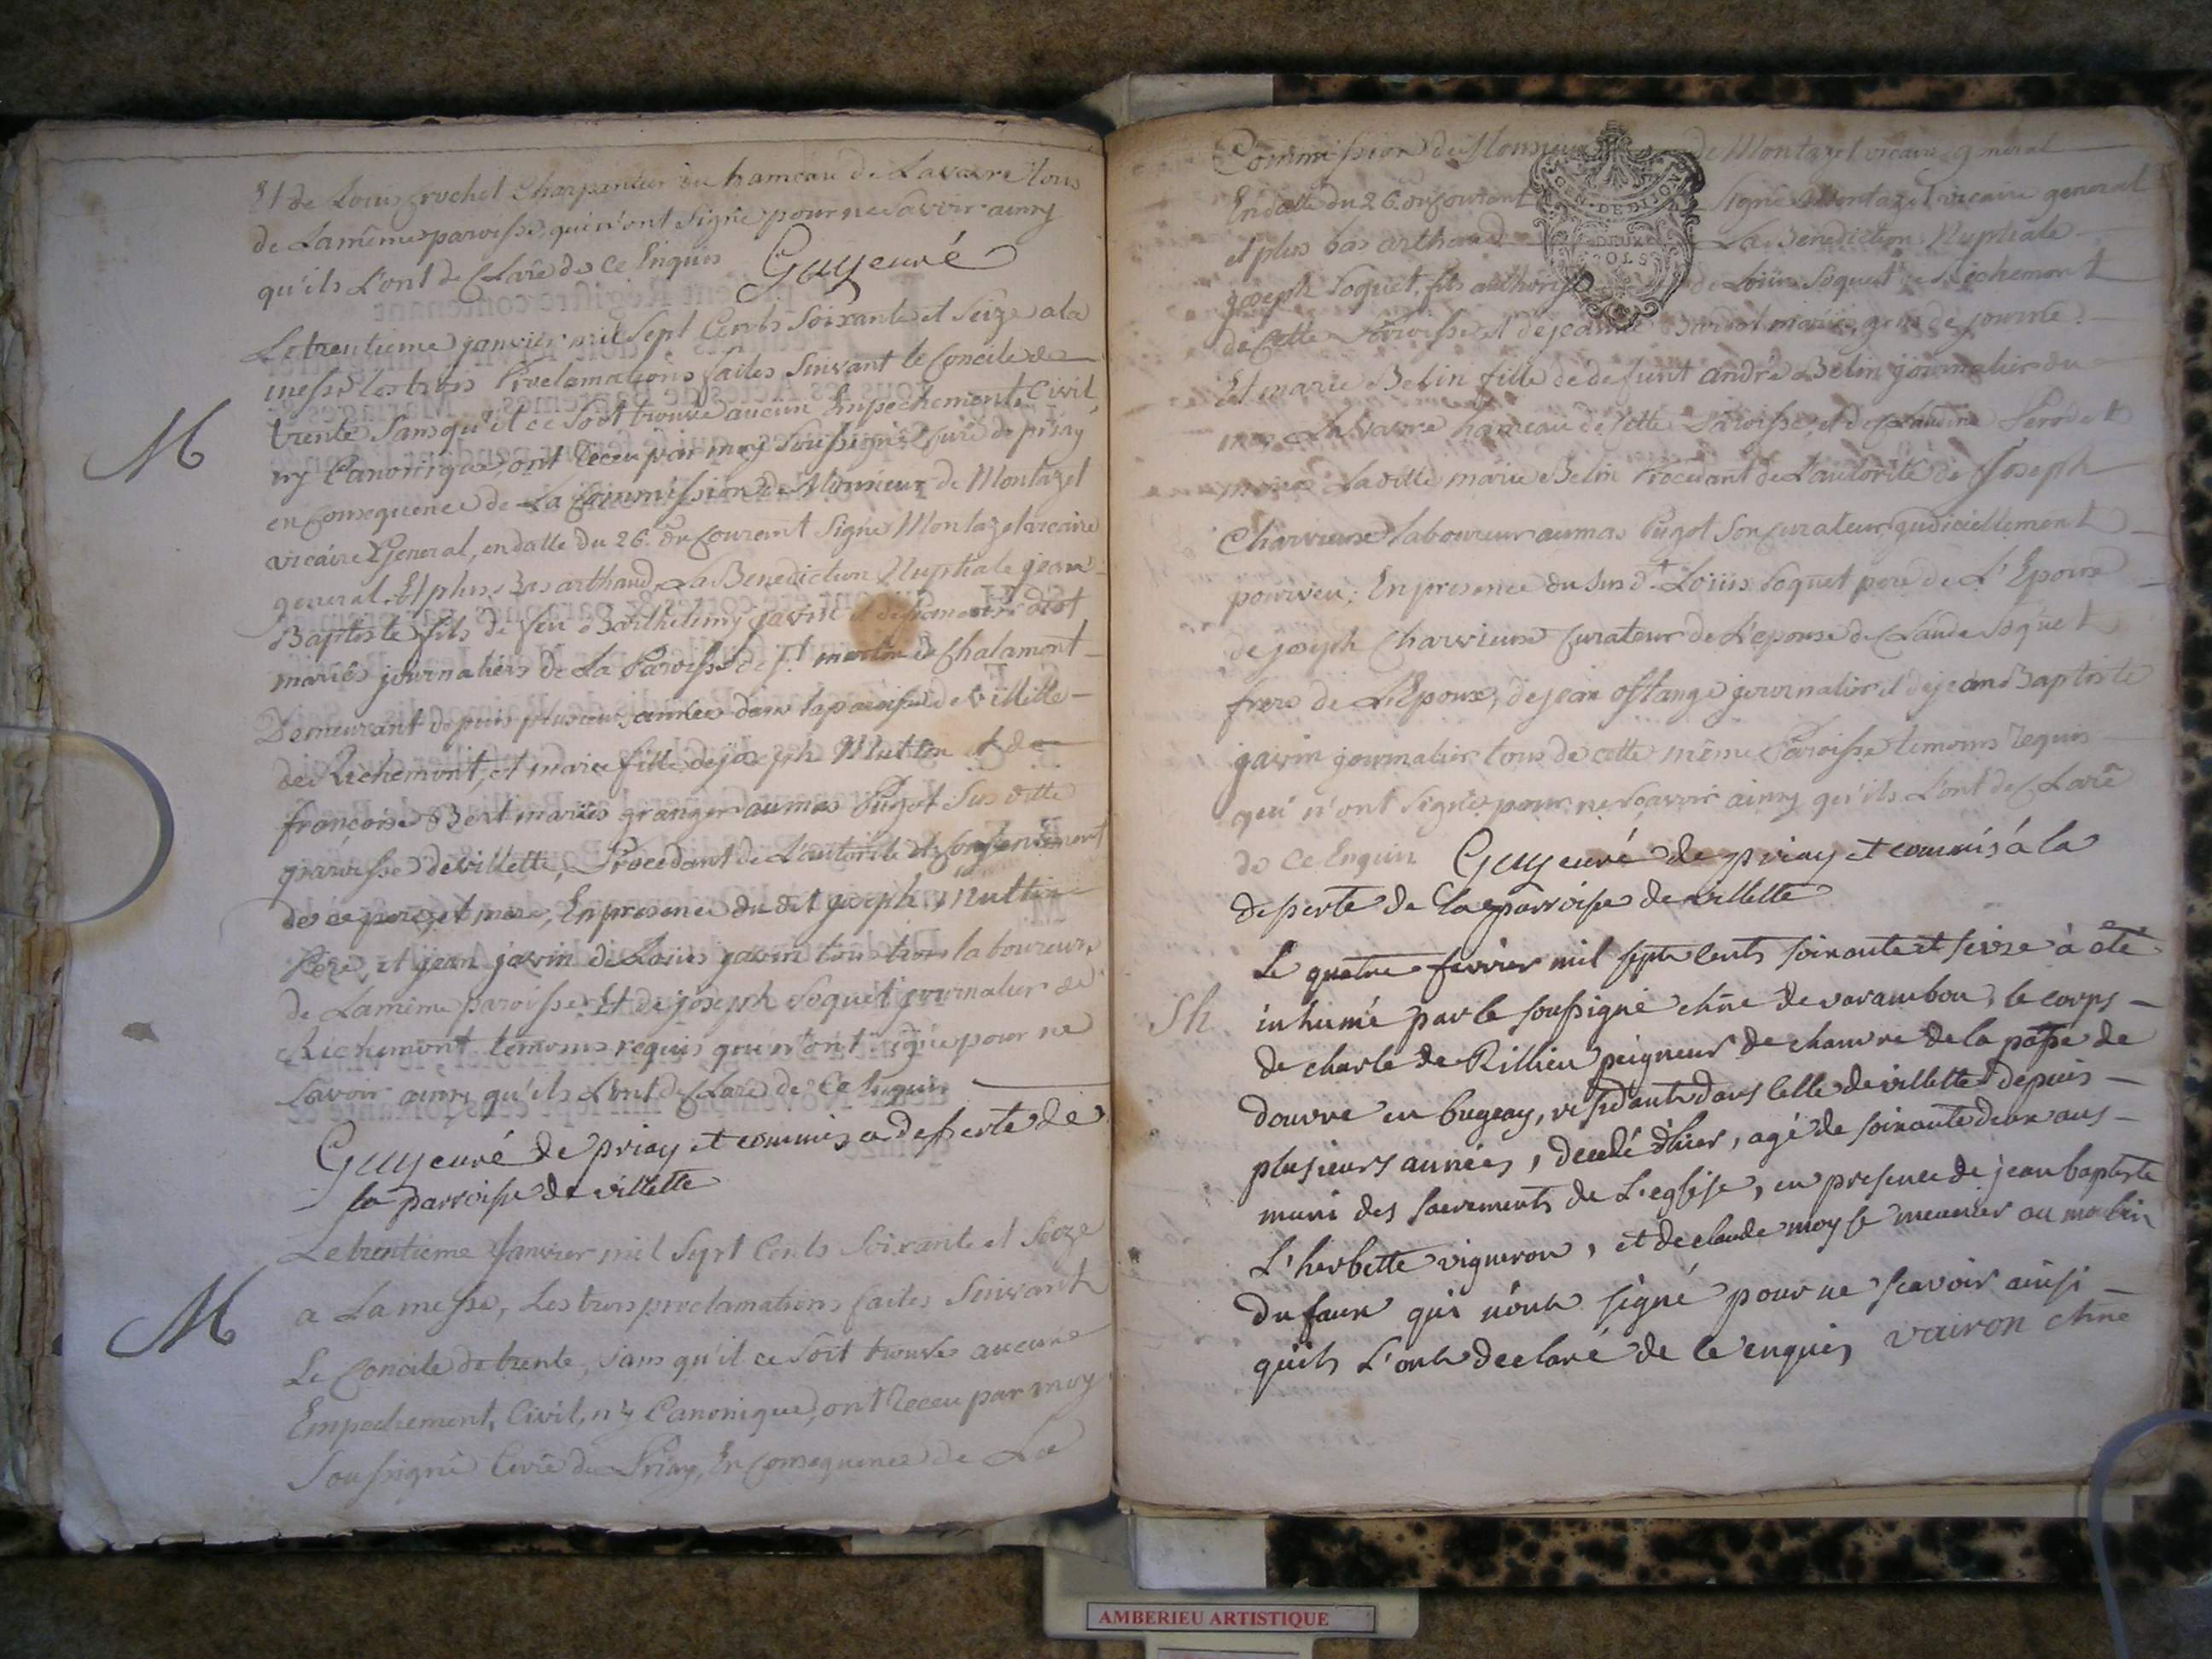 Et de Louis crochet Charpantier du hameau de Lavavre tous
de La même paroisse, qui n'ont Signé pour ne Savoir ainsy
qu'ils L'ont de Claré de Ce Enquis Guy curé
Le trentieme janvier mil Sept Cents Soixante et Seize a la
messe les trois Proclamations faites Suivant le Concile de
M
trente Sans qu'il ce Soit trouvé aucun Empechement Civil
ny Canonique, ont Receu par moy Soussigné Curé de priay
en Consequence de La Commission de Monsieur de Montazet
vicaire General, en datte du 26. du Courant Signé Montazet vicaire
general. Et plus Bas arthaud La Benediction Nuptiale jean
Baptiste fils de feu Barthelemy javin et de
mariés journaliers de La Paroisse de St. martin de Chalamont
Demeurant depuis plusieurs années dans la paroisse de Villette
de Richemont, et marie fille de joseph Muttin et de
francoise Bert mariés granger au mas Pugot Sus ditte
paroisse de villette, Procedant de L'autorité et Consentement
de ce pere et mere, En presence du dit joseph Muttin
Pere, et jean javin de Louis javin tous trois laboureurs
de La même paroisse Et de joseph Soquet journalier de
Richemont temoins requis qui n'ont Signé pour ne
Savoir ainsy qu'ils L'ont de Claré de Ce Enquis
Guy curé de priay et commis a desserte de
la parroisse de villette
Le trentieme Janvier mil Sept Cents Soixante et Seize
M
a La messe, Les trois proclamations faites Suivant
Le Concile de trente, Sans qu'il ce Soit trouvé aucun
Empechement, Civil, n'y Canonique, ont Receu par moy
Soussigné Curé de Priay, En Consequence de La
Commission de Monsieur de Montazet vicaire general
En datte du 26. du Courant Signé Montazet vicaire general
GEN. DE DIJON
DEUX
SOLS
et plus bas arthaud La Benediction Nuptiale
joseph Soquet fils authorisé de Loüis Soquet de Richemont
de Cette Paroisse et de jeanne mariés, gens de journée
Et marie Belin fille de defunt andré Belin journalier du
mas Lavavre hameau de Cette Paroisse, et de Claudine
Laditte marie Belin Procedant de L'autorité de Joseph
Charvieux laboureur au mas Pugot Son Curateur judiciellement
pourveu; En presence du Sus dt. Loüis Soquet pere de L'Epoux
de joseph Charvieux Curateur de L'epouse de Claude Soquet
frere de L'Epoux, de jean ostange journalier et de jean Baptiste
javin journalier tous de cette même Paroisse temoins Requis
qui n'ont Signé pour ne Scavoir ainsy qu'ils L'ont de Claré
de Ce Enquis Guy curé de priay et commis á la
desserte de la parroisse de villette
Le quatre fevrier mil sept cents soixante et seize à été
Sh.
inhumé par le soussigné chne de varambon, le corps
de charle de Rillieu peigneur de chanvre de la passe de
douvre en bugeay, residant dans celle de villette depuis
plusieurs années, decedé d'hier, agé de soixante deux ans
muni des sacrements de L'eglise, en presence de jean baptiste
L'herbette vigneron, et de claude moyse meunier au moulin
du faux qui n'ont signé pour ne scavoir ainsi
quils L'ont declaré de ce enquis vairon chne
AMBERIEU ARTISTIQUE